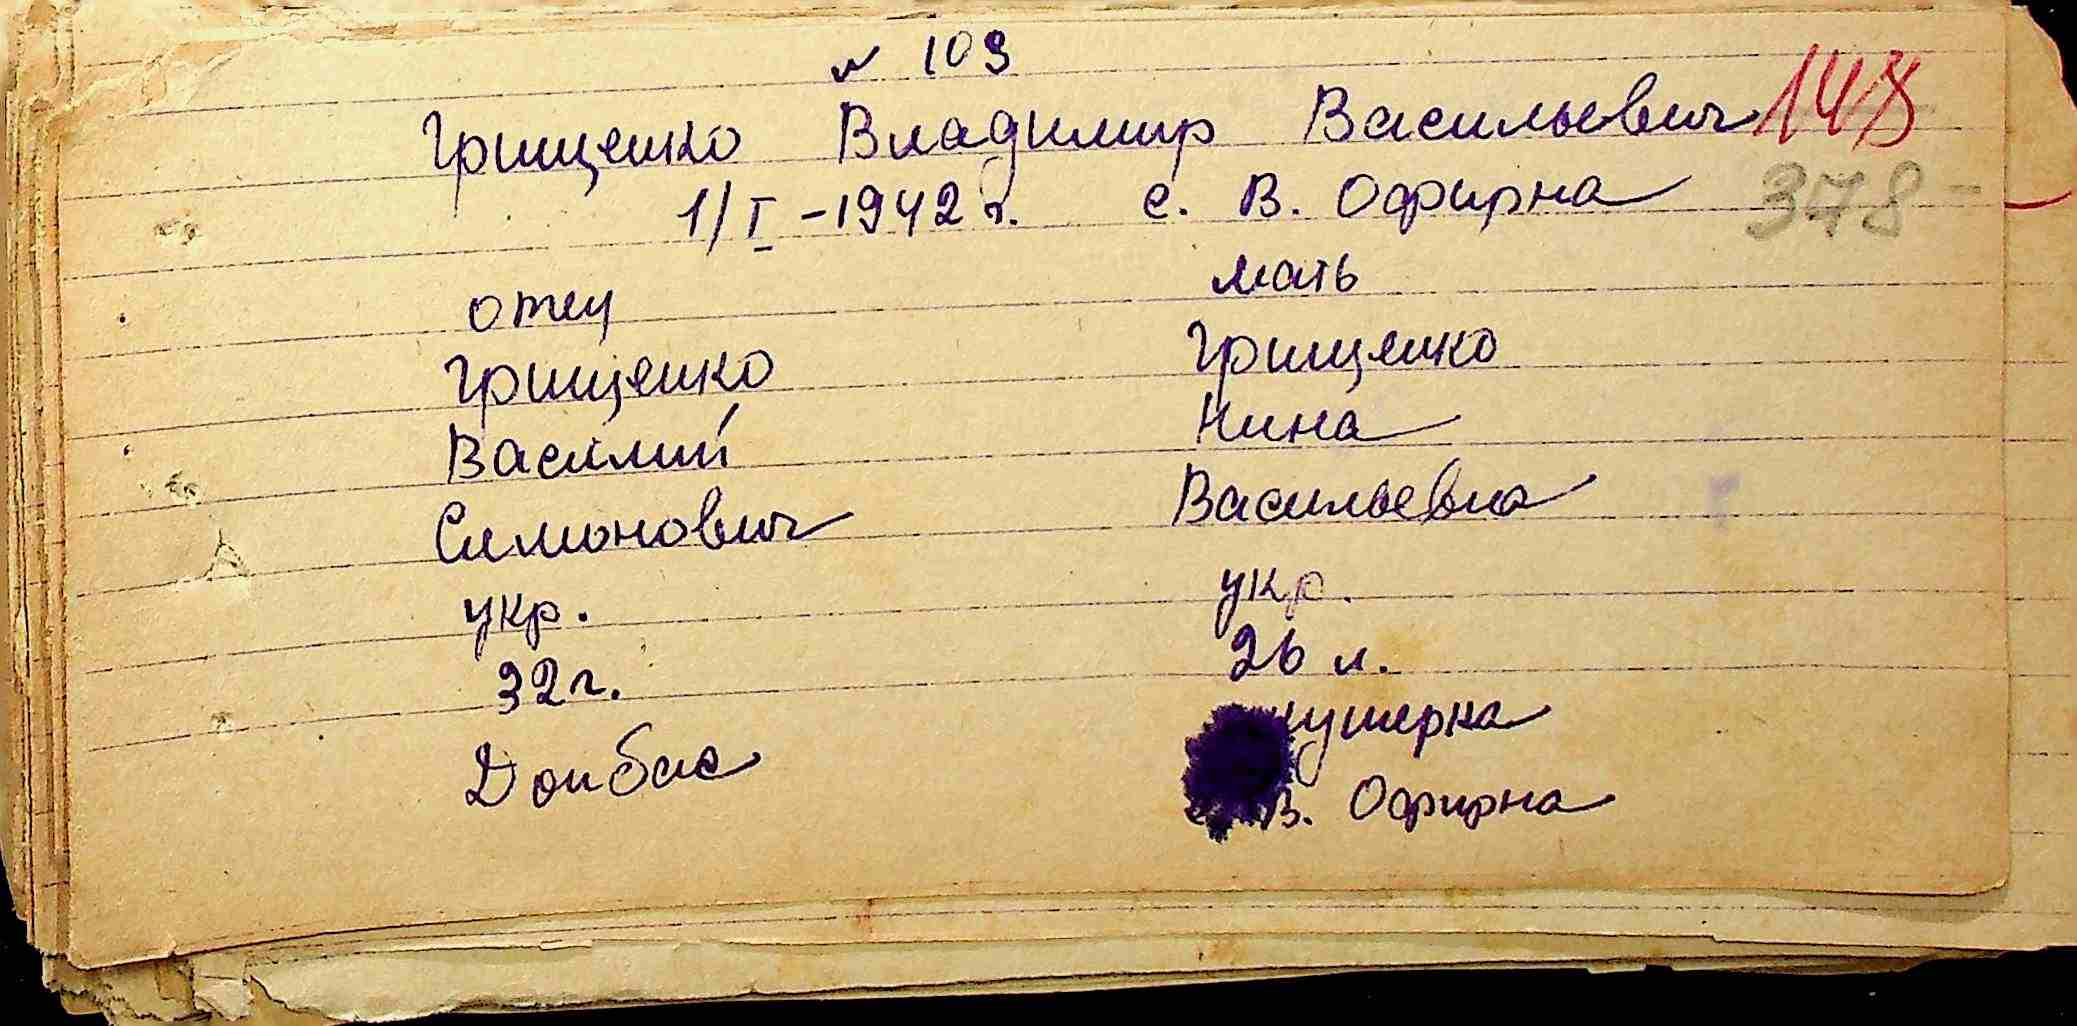 № 109
Грищенко Владимир Васильевич 148
1/I -1942 г. с. В. Офирна 378-
отец мать
Грищенко Грищенко
Василий Нина
Симонович Васильевна
укр. укр.
32 г. 26 л.
Донбас В. Офирна